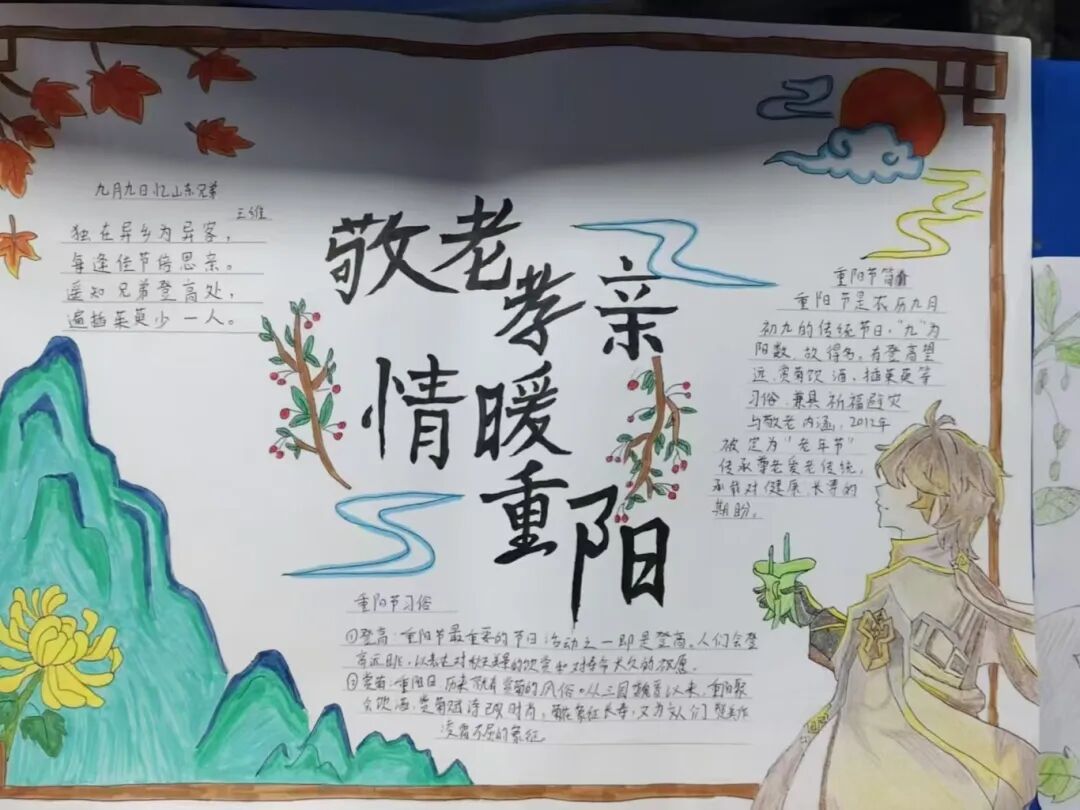 九月九日忆山东兄弟
王维
独在异乡为异客，
每逢佳节倍思亲。
遥知兄弟登高处，
遍插茱萸少一人。
敬老孝亲
情暖
重阳
重阳节简介
重阳节是农历九月
初九的传统节日，"九"为
阳数，故得名。有登高望
远、赏菊饮酒，插茱萸等
习俗，兼具祈福避灾
与敬老内涵，2012年
被定为"老年节"
传承尊老爱老传统，
承载对健康、长寿的
期盼。
重阳节习俗
①登高：重阳节最重要的节日活动之一即是登高。人们会登
高远眺，以表达对秋天美景的欣赏和对寿命长久的祝愿。
②赏菊：重阳日，历来就有赏菊的风俗。从三国魏晋以来，重阳聚
会饮酒、赏菊赋诗已成时尚，菊花象征长寿，又为文人们赞美作
凌霜不屈的象征。